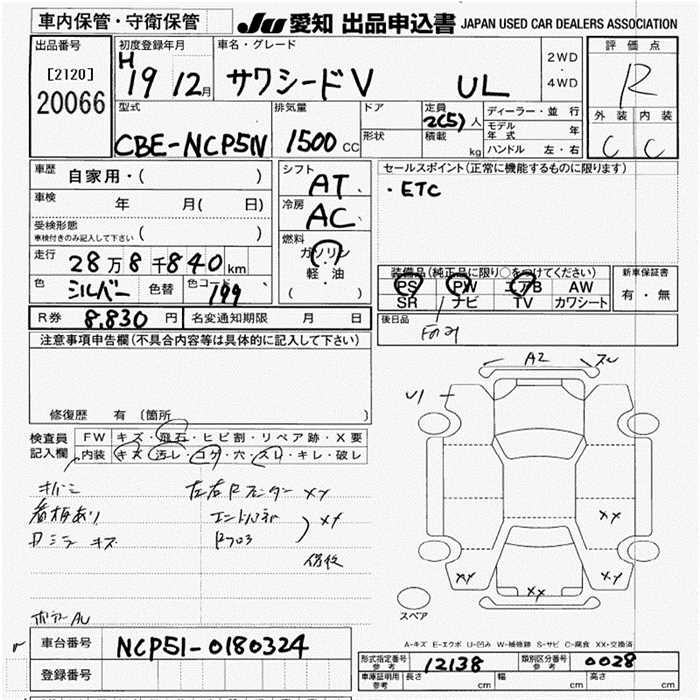 車内保管・守衛保管
JU 愛知 出品申込書 JAPAN USED CAR DEALERS ASSOCIATION
出品番号
[2120]
20066
初度登録年月
H
19 12月
車名・グレード
サクシードV UL
2WD
・
4WD
評価点
R
外装 内装
C C
型式
CBE-NCP51V
排気量
1500 CC
ドア
形状
定員
2(5)人
積載
kg
ディーラー・並行
モデル年式 年
ハンドル 左・右
車歴
自家用・( )
車検
年 月( 日)
受検形態
車検付きのみ記入して下さい ( )
走行
28万8千840km
色
シルバー
色替
色コード
199
シフト
AT
冷房
AC
燃料
ガソリン
軽・油
( )
セールスポイント(正常に機能するものに限ります)
・ETC
装備品(純正品に限り○をつけてください)
PS PW エアB AW
SR ナビ TV カワシート
新車保証書
有・無
R券
8,830円
名変通知期限 月 日
後日品
Fのみ
注意事項申告欄(不具合内容等は具体的に記入して下さい)
修復歴 有(箇所 )
検査員
記入欄
FW キズ・飛石・ヒビ割・リペア跡・X要
内装 キズ・汚レ・コゲ・穴・スレ・キレ・破レ
看板あり
左右Rフェンダー XX
エンドパネル
Rフロア
XX
修復
A2
U1
XX
XX
XX
XX
スペア
A-キズ E-エクボ U-凹み W-補修跡 S-サビ C-腐食 XX-交換済
車台番号
NCP51-0180324
登録番号
形式指定番号
参考
12138
類別区分番号
参考
0028
車庫証明用
参考
長さ cm
幅 cm
高さ cm